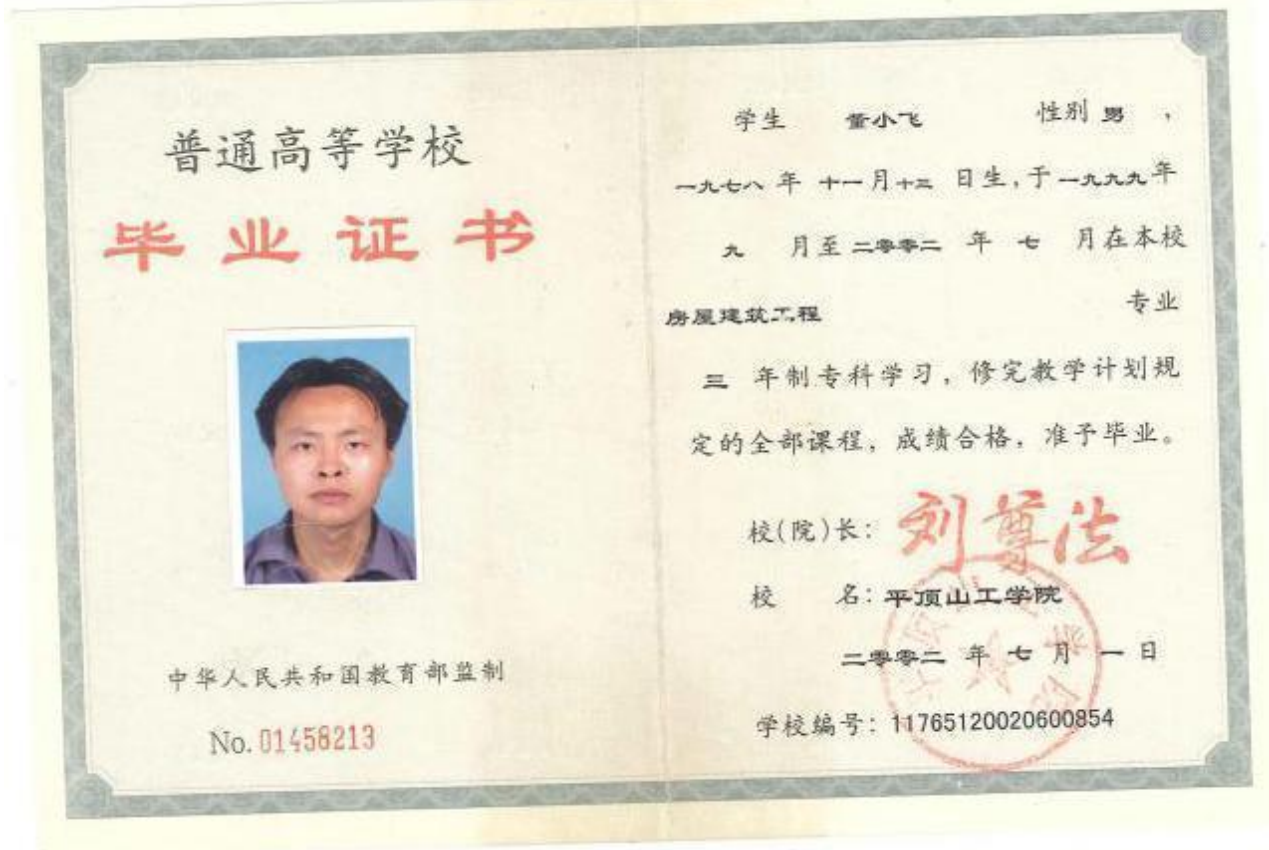 普通高等学校
毕业证书
中华人民共和国教育部监制
No. 01458213
学生 董小飞 性别 男 ，
一九七八 年 十一月十三 日生，于一九九九年
九 月至 二零零二 年 七 月在本校
房屋建筑工程 专业
三 年制专科学习，修完教学计划规
定的全部课程，成绩合格，准予毕业。
校(院)长：刘尊法
校 名：平顶山工学院
二零零二 年 七 月 一 日
学校编号：11765120020600854